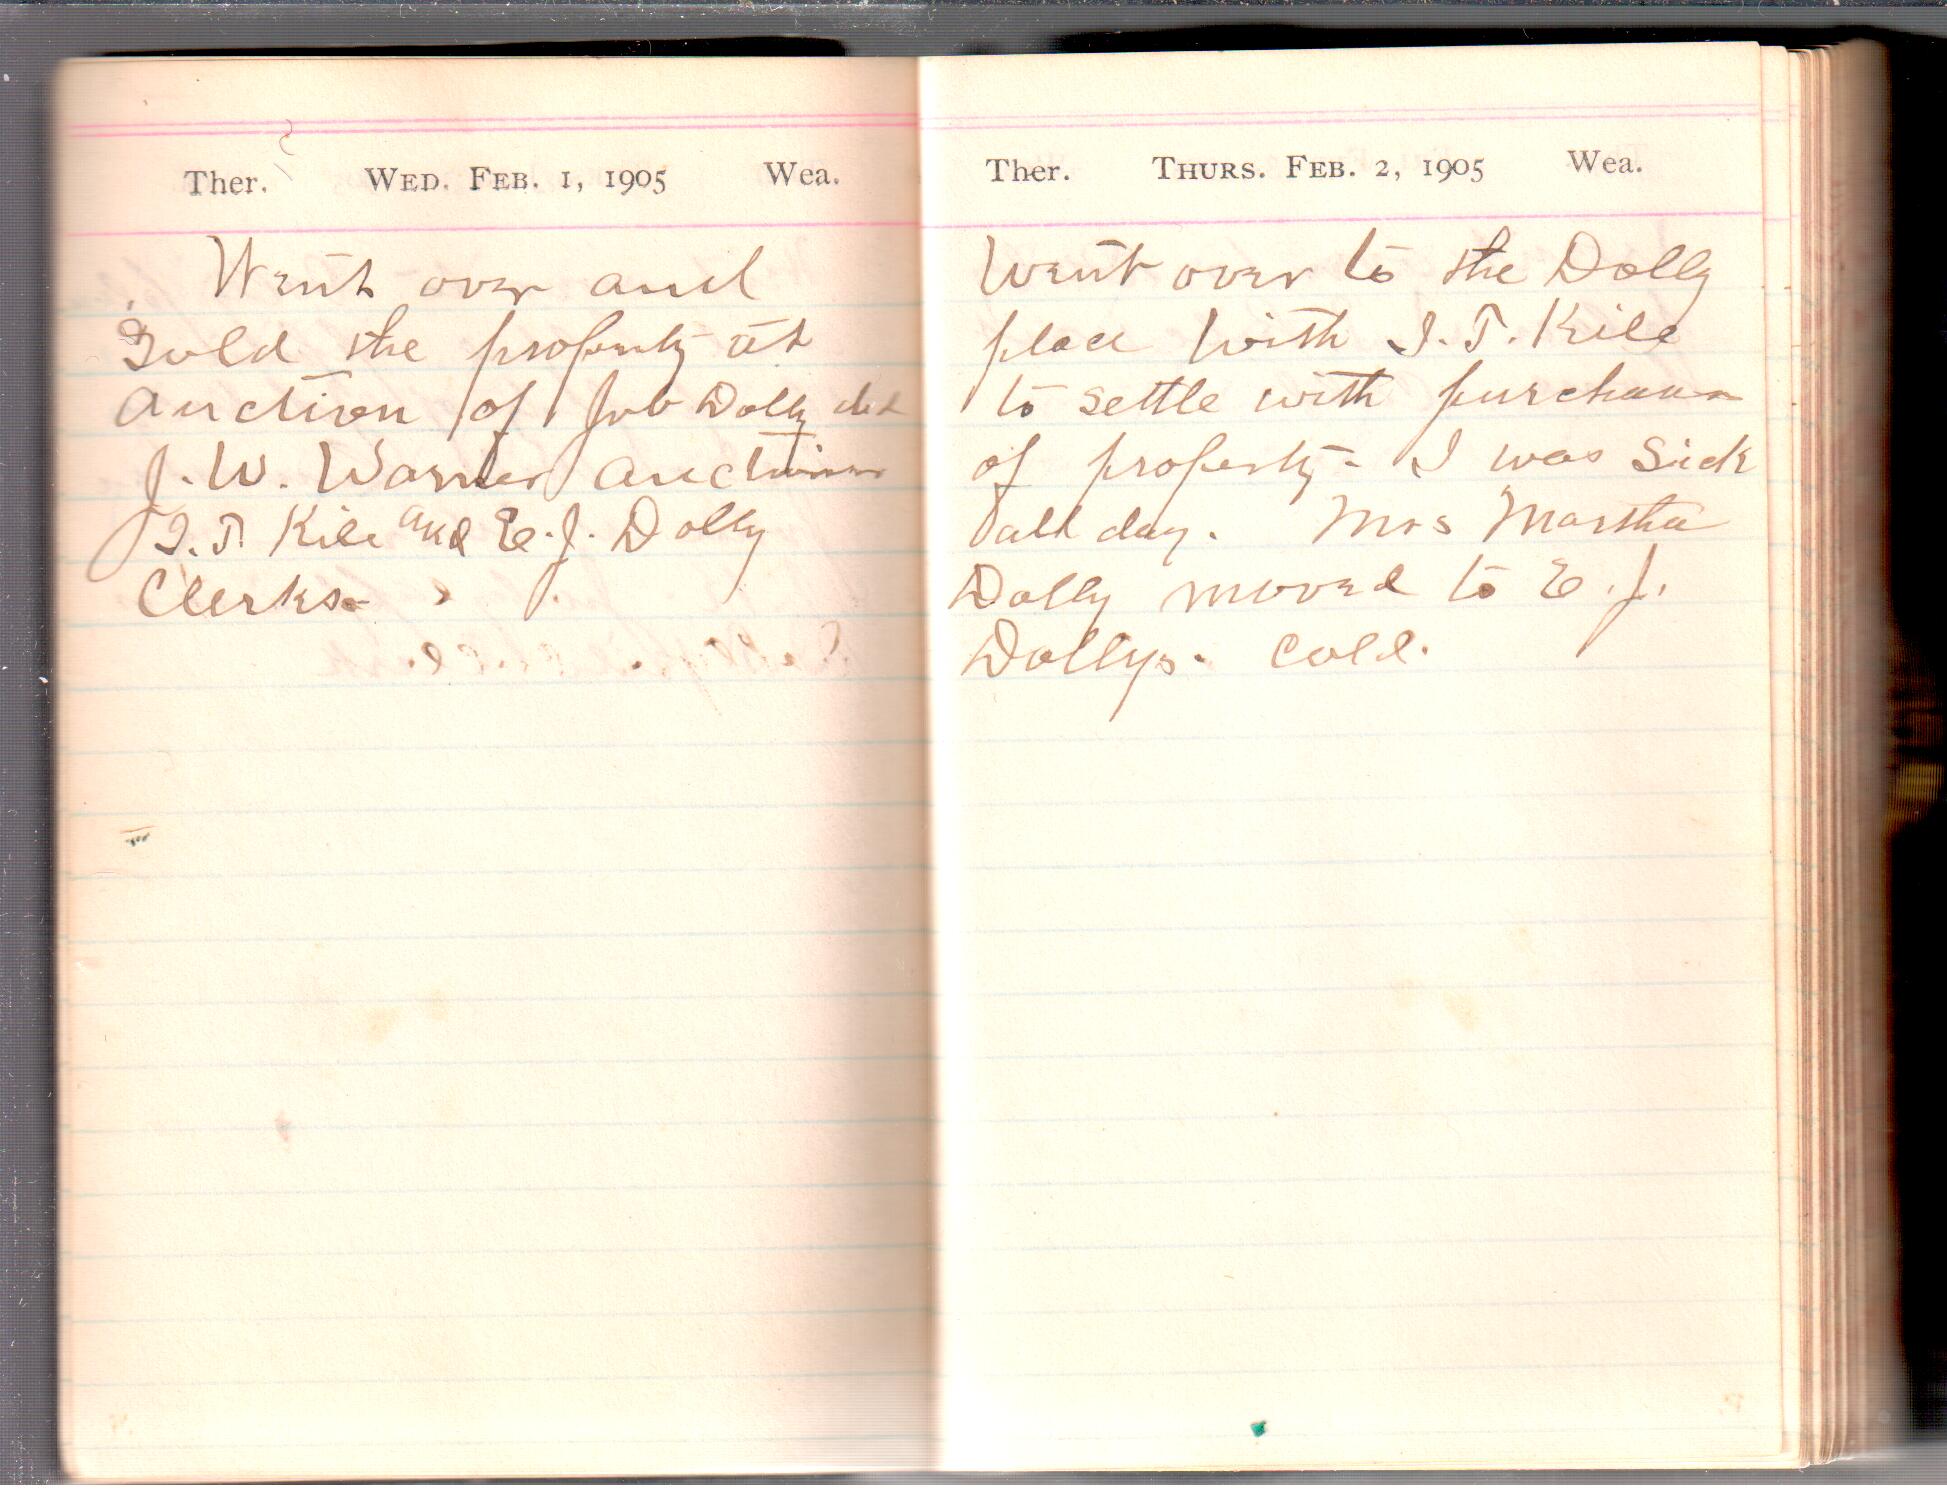 Ther. WED. FEB. 1, 1905 Wea.
Went over and
Sold the property at
auction of Job Dolly dec
J. W. Warner auctioneer
I. T. Kile and E. J. Dolly
Clerks.
Ther. THURS. FEB. 2, 1905 Wea.
Went over to the Dolly
place with I. T. Kile
to settle with purchasers
of property - I was Sick
all day. Mrs Martha
Dolly moved to E. J.
Dollys. cold.